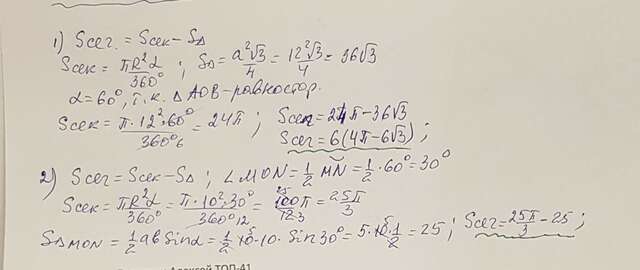 1) Sсег. = Sсек – S∆
Sсек = πR²α/360° ; S∆ = a²√3/4 = 12²√3/4 = 36√3
α = 60°, т.к. ∆ AOB – равностор.
Sсек = π·12²·60°/360°6 = 24π ; Sсег = 24π – 36√3
Sсег = 6(4π – 6√3) ;
2) Sсег = Sсек – S∆ ; ∠MON = 1/2 MN = 1/2 · 60° = 30°
Sсек = πR²α/360° = π·10²·30°/360°12 = 25 100π/12 3 = 25π/3
S∆MON = 1/2 ab Sinα = 1/2 · 10 · 10 · Sin 30° = 5·10·1/2 = 25 ; Sсег = 25π/3 – 25 ;